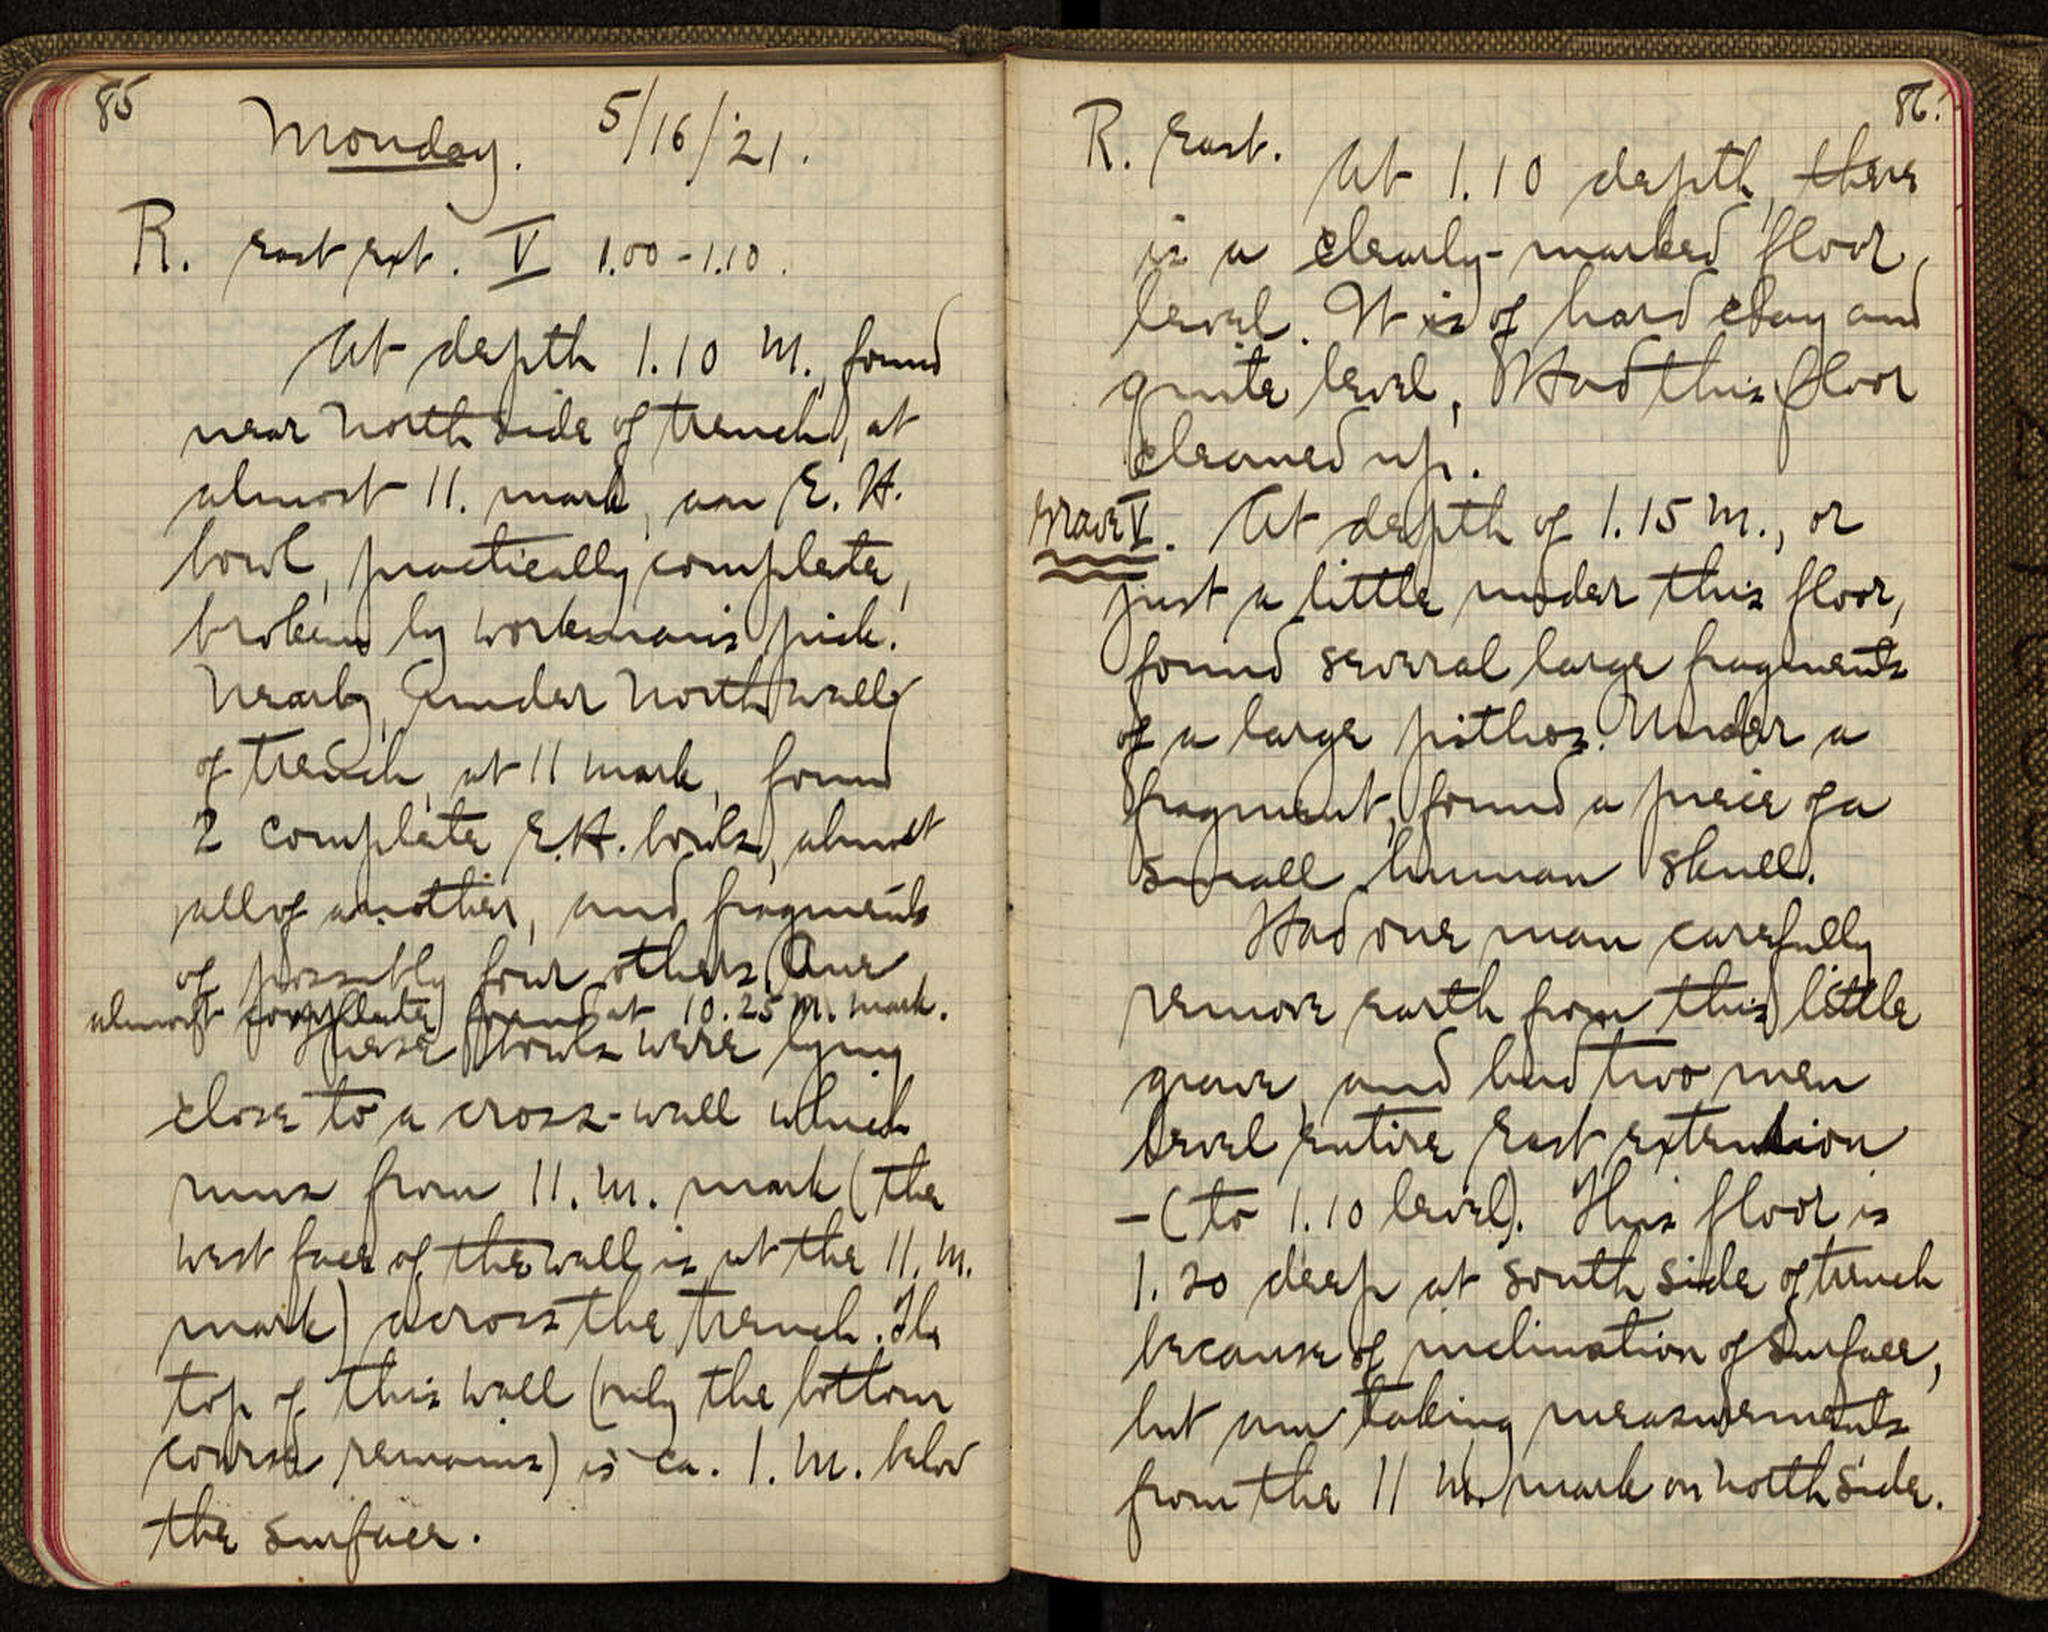 85
Monday. 5/16/'21.
R. East Ext. V 1.00-1.10.
At depth 1.10 m., found
near north side of trench, at
almost 11. mark, an E.H.
bowl, practically complete,
broken by workman's pick.
Nearby, under north wall
of trench, at 11 mark, found
2 complete E.H. bowls, almost
all of another, and fragments
of possibly four others. One
almost complete found at 10.25 m. mark.
These bowls were lying
close to a cross-wall which
runs from 11. m. mark (the
west face of the wall is at the 11. m.
mark) across the trench. The
top of this wall (only the bottom
course remains) is ca. 1. m. below
the surface.
86.
R. East.
At 1.10 depth, there
is a clearly-marked floor
level. It is of hard clay and
quite level. Had this floor
cleaned up.
Grave V. At depth of 1.15 m., or
just a little under this floor,
found several large fragments
of a large pithos. Under a
fragment, found a piece of a
small human skull.
Had one man carefully
remove earth from this little
grave, and had two men
level entire East extension
-(to 1.10 level). This floor is
1.20 deep at south side of trench
because of inclination of surface,
but am taking measurements
from the 11 m. mark on north side.